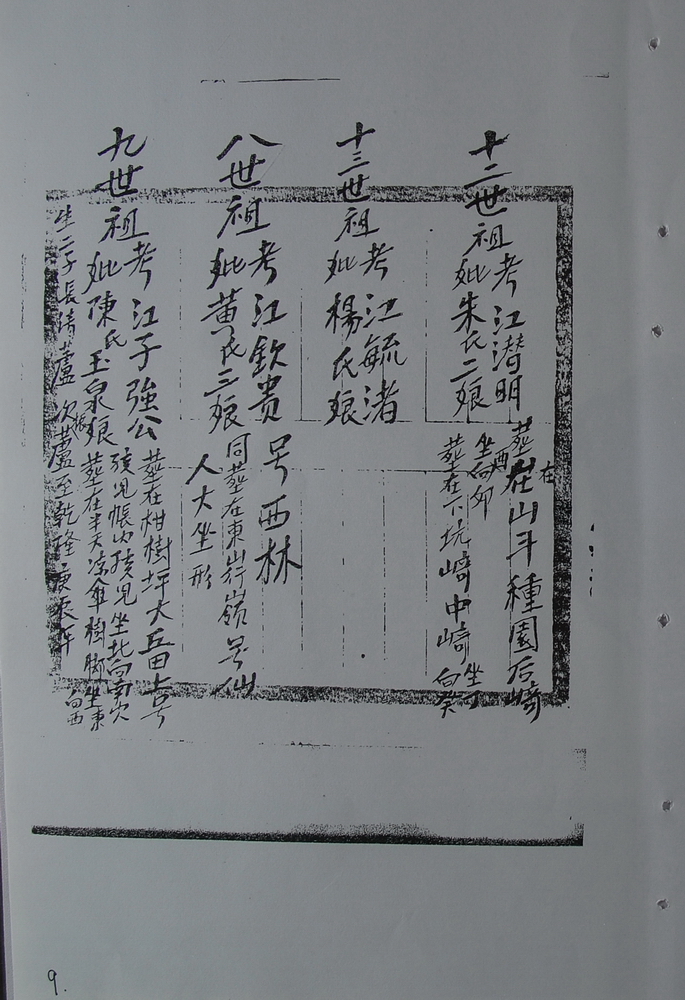 十二世祖考江潜明 葬在山斗種園后崎
坐酉向卯
妣朱氏二娘 葬在下坑崎中崎 坐丁向癸
十三世祖考江毓渚
妣楊氏娘
八世祖考江欽貴 号西林
妣黄氏三娘 同葬在東山行嶺号仙
人大坐形
九世祖考江子強公 葬在柑樹坪大丘田上号
孩兒帳內孩兒坐北向南穴
妣陳氏玉泉娘 葬在半天凉傘樹脚坐東向西
生二子長 蘆次 蘆至乾隆庚辰年
9.